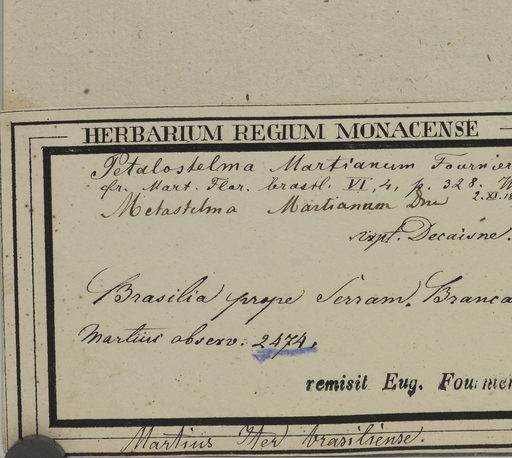 HERBARIUM REGIUM MONACENSE
Petalostelma Martianum Fournier
cfr. Mart. Flor. brasil. VI, 4, p. 328.
2.XI.18
Metastelma Martianum Dne
script. Decaisne.
Brasilia prope Serram. Branca
Martius observ: 2474.
remisit Eug. Fournier
Martius Iter brasiliense.